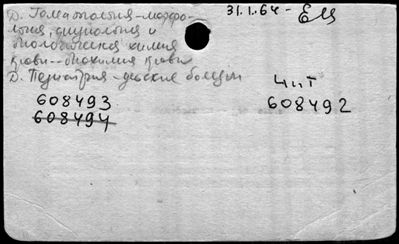 Д. Гематология - морфо-
логия, физиология и
биологическая химия
крови - биохимия крови
Д. Педиатрия - детские болезни
31.1.64 -
чит
608493
608492
608494